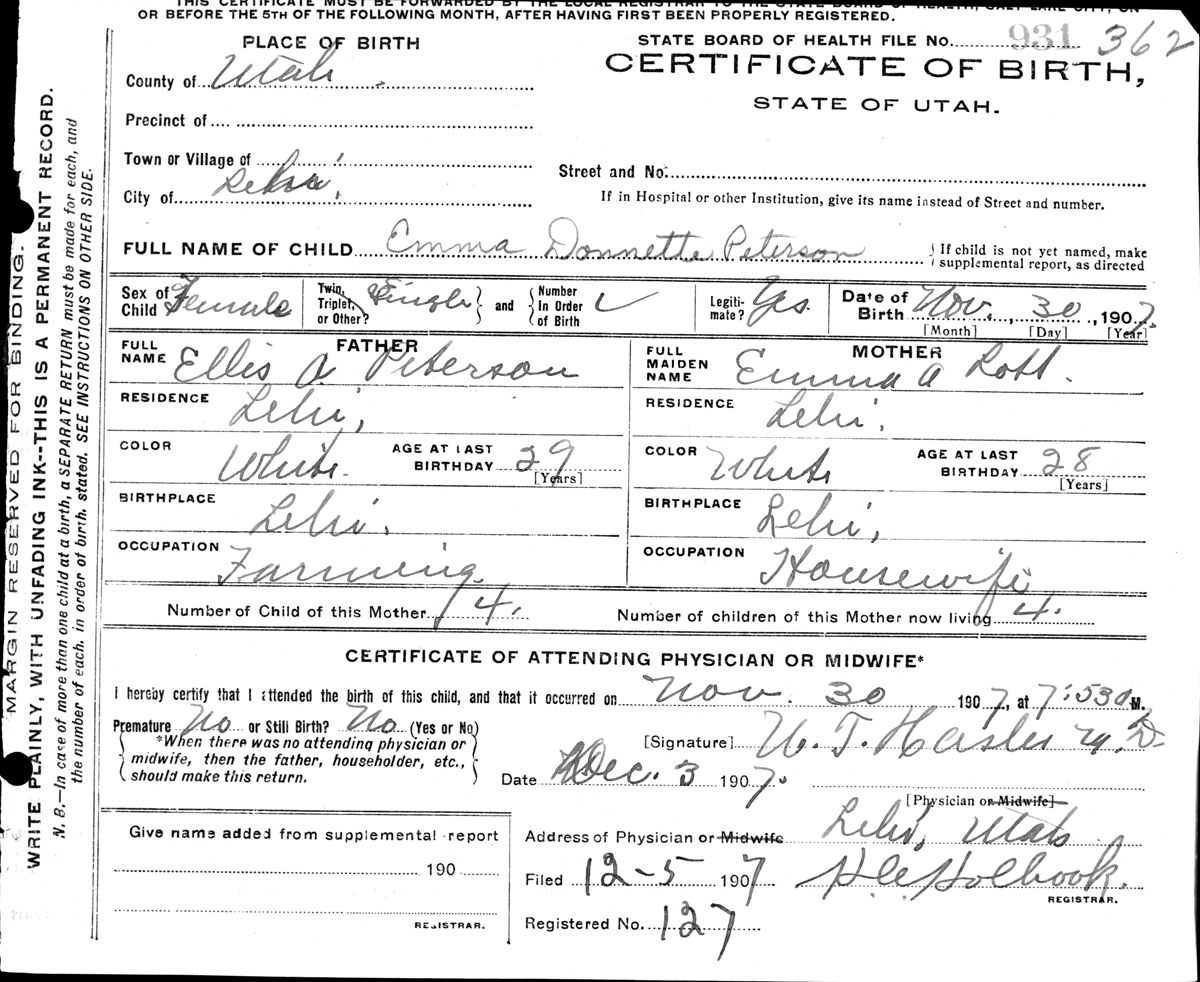 THIS CERTIFICATE MUST BE FORWARDED BY THE LOCAL REGISTRAR TO THE STATE BOARD OF HEALTH, SALT LAKE CITY, ON
OR BEFORE THE 5TH OF THE FOLLOWING MONTH, AFTER HAVING FIRST BEEN PROPERLY REGISTERED.
PLACE OF BIRTH
STATE BOARD OF HEALTH FILE No. 931 362
CERTIFICATE OF BIRTH,
STATE OF UTAH.
County of Utah
Precinct of
Town or Village of
City of
Street and No.
If in Hospital or other Institution, give its name instead of Street and number.
FULL NAME OF CHILD Emma Donnette Peterson
If child is not yet named, make
supplemental report, as directed
Sex of Child Female
Twin, Triplet, or Other? Single and Number in Order of Birth
Legiti-mate? Yes.
Date of Birth Nov. 30, 1907
[Month] [Day] [Year]
FATHER
FULL NAME Ellis A Peterson
RESIDENCE Lehi,
COLOR White. AGE AT LAST BIRTHDAY 29
[Years]
BIRTHPLACE Lehi.
OCCUPATION Farming
MOTHER
FULL MAIDEN NAME Emma A
RESIDENCE Lehi.
COLOR White AGE AT LAST BIRTHDAY 28
[Years]
BIRTHPLACE Lehi,
OCCUPATION Housewife
Number of Child of this Mother 4. Number of children of this Mother now living 4.
CERTIFICATE OF ATTENDING PHYSICIAN OR MIDWIFE*
I hereby certify that I attended the birth of this child, and that it occurred on Nov. 30 1907, at 7:53 M.
Premature No or Still Birth? No (Yes or No)
*When there was no attending physician or
midwife, then the father, householder, etc.,
should make this return.
[Signature] M.D.
Date Dec. 3 1907.
[Physician or Midwife]
Give name added from supplemental report
190
REGISTRAR.
Address of Physician or Midwife Lehi, Utah
Filed 12-5 1907 Holbrook.
REGISTRAR.
Registered No. 127
MARGIN RESERVED FOR BINDING.
WRITE PLAINLY, WITH UNFADING INK--THIS IS A PERMANENT RECORD.
N. B.—In case of more than one child at a birth, a SEPARATE RETURN must be made for each, and
the number of each, in order of birth, stated. SEE INSTRUCTIONS ON OTHER SIDE.